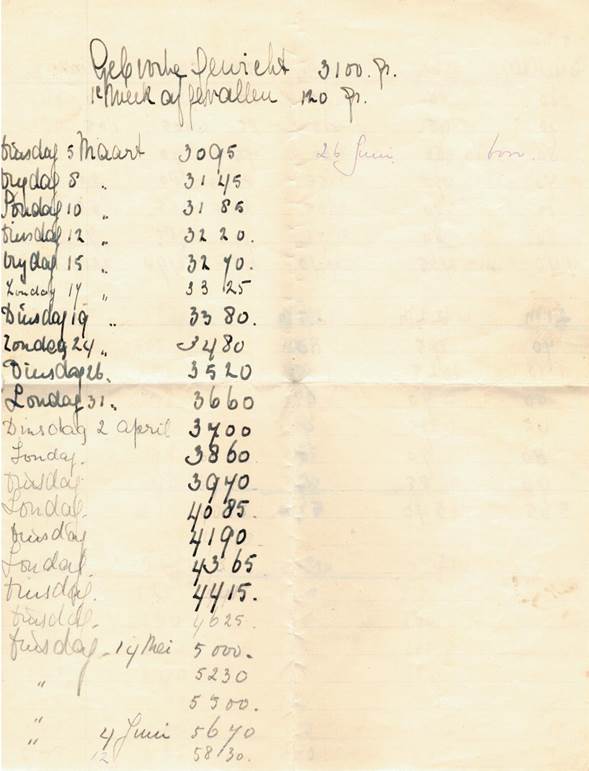 Geboorte Gewicht 3100. gr.
1e week afgevallen 120 gr.
Dinsdag 5 Maart 3095 26 Juni
Vrydag 8 " 3145
Zondag 10 " 3185
Dinsdag 12 " 3220.
Vrydag 15 " 3270.
Zondag 17 " 3325
Dinsdag 19 " 3380.
Zondag 24 " 3480
Dinsdag 26. 3520
Zondag 31. " 3660
Dinsdag 2 april 3700
Zondag. 3860
Dinsdag 3970.
Zondag. 4085.
Dinsdag 4190.
Zondag 4365
Dinsdag. 4415.
Dinsdag. 4625.
Dinsdag - 14 Mei 5000.
" 5230
5300.
" 4 Juni 5670
" 12 5830.